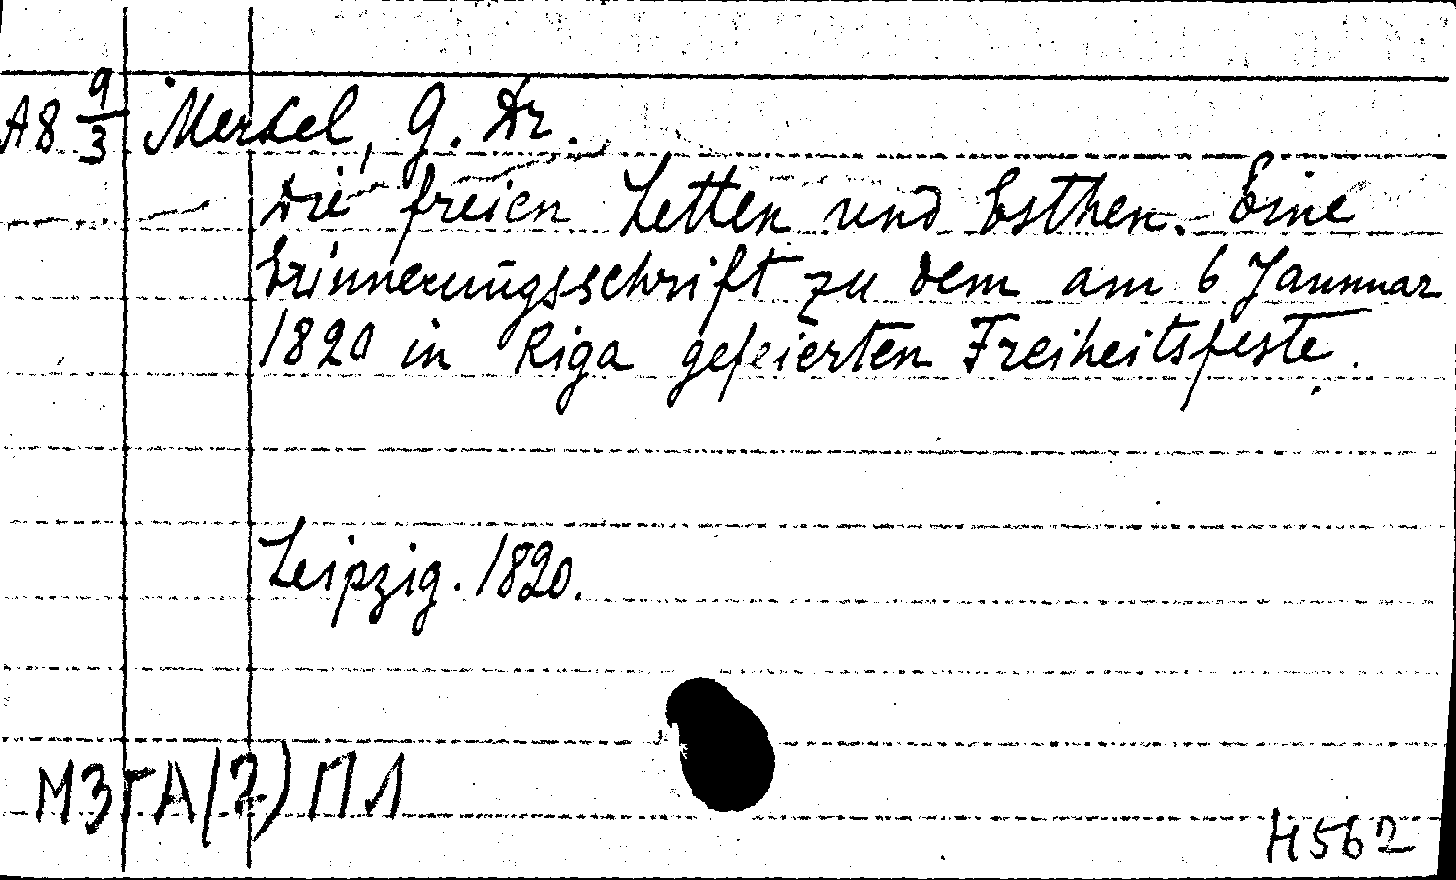 A8 9/3 Merkel, G. Dr.
Die freien Letten und Esthen. Eine
Erinnerungsschrift zu dem am 6 Januar
1820 in Riga gefeierten Freiheitsfeste.
Leipzig. 1820.
МЗГА(2)ПЛ
H562